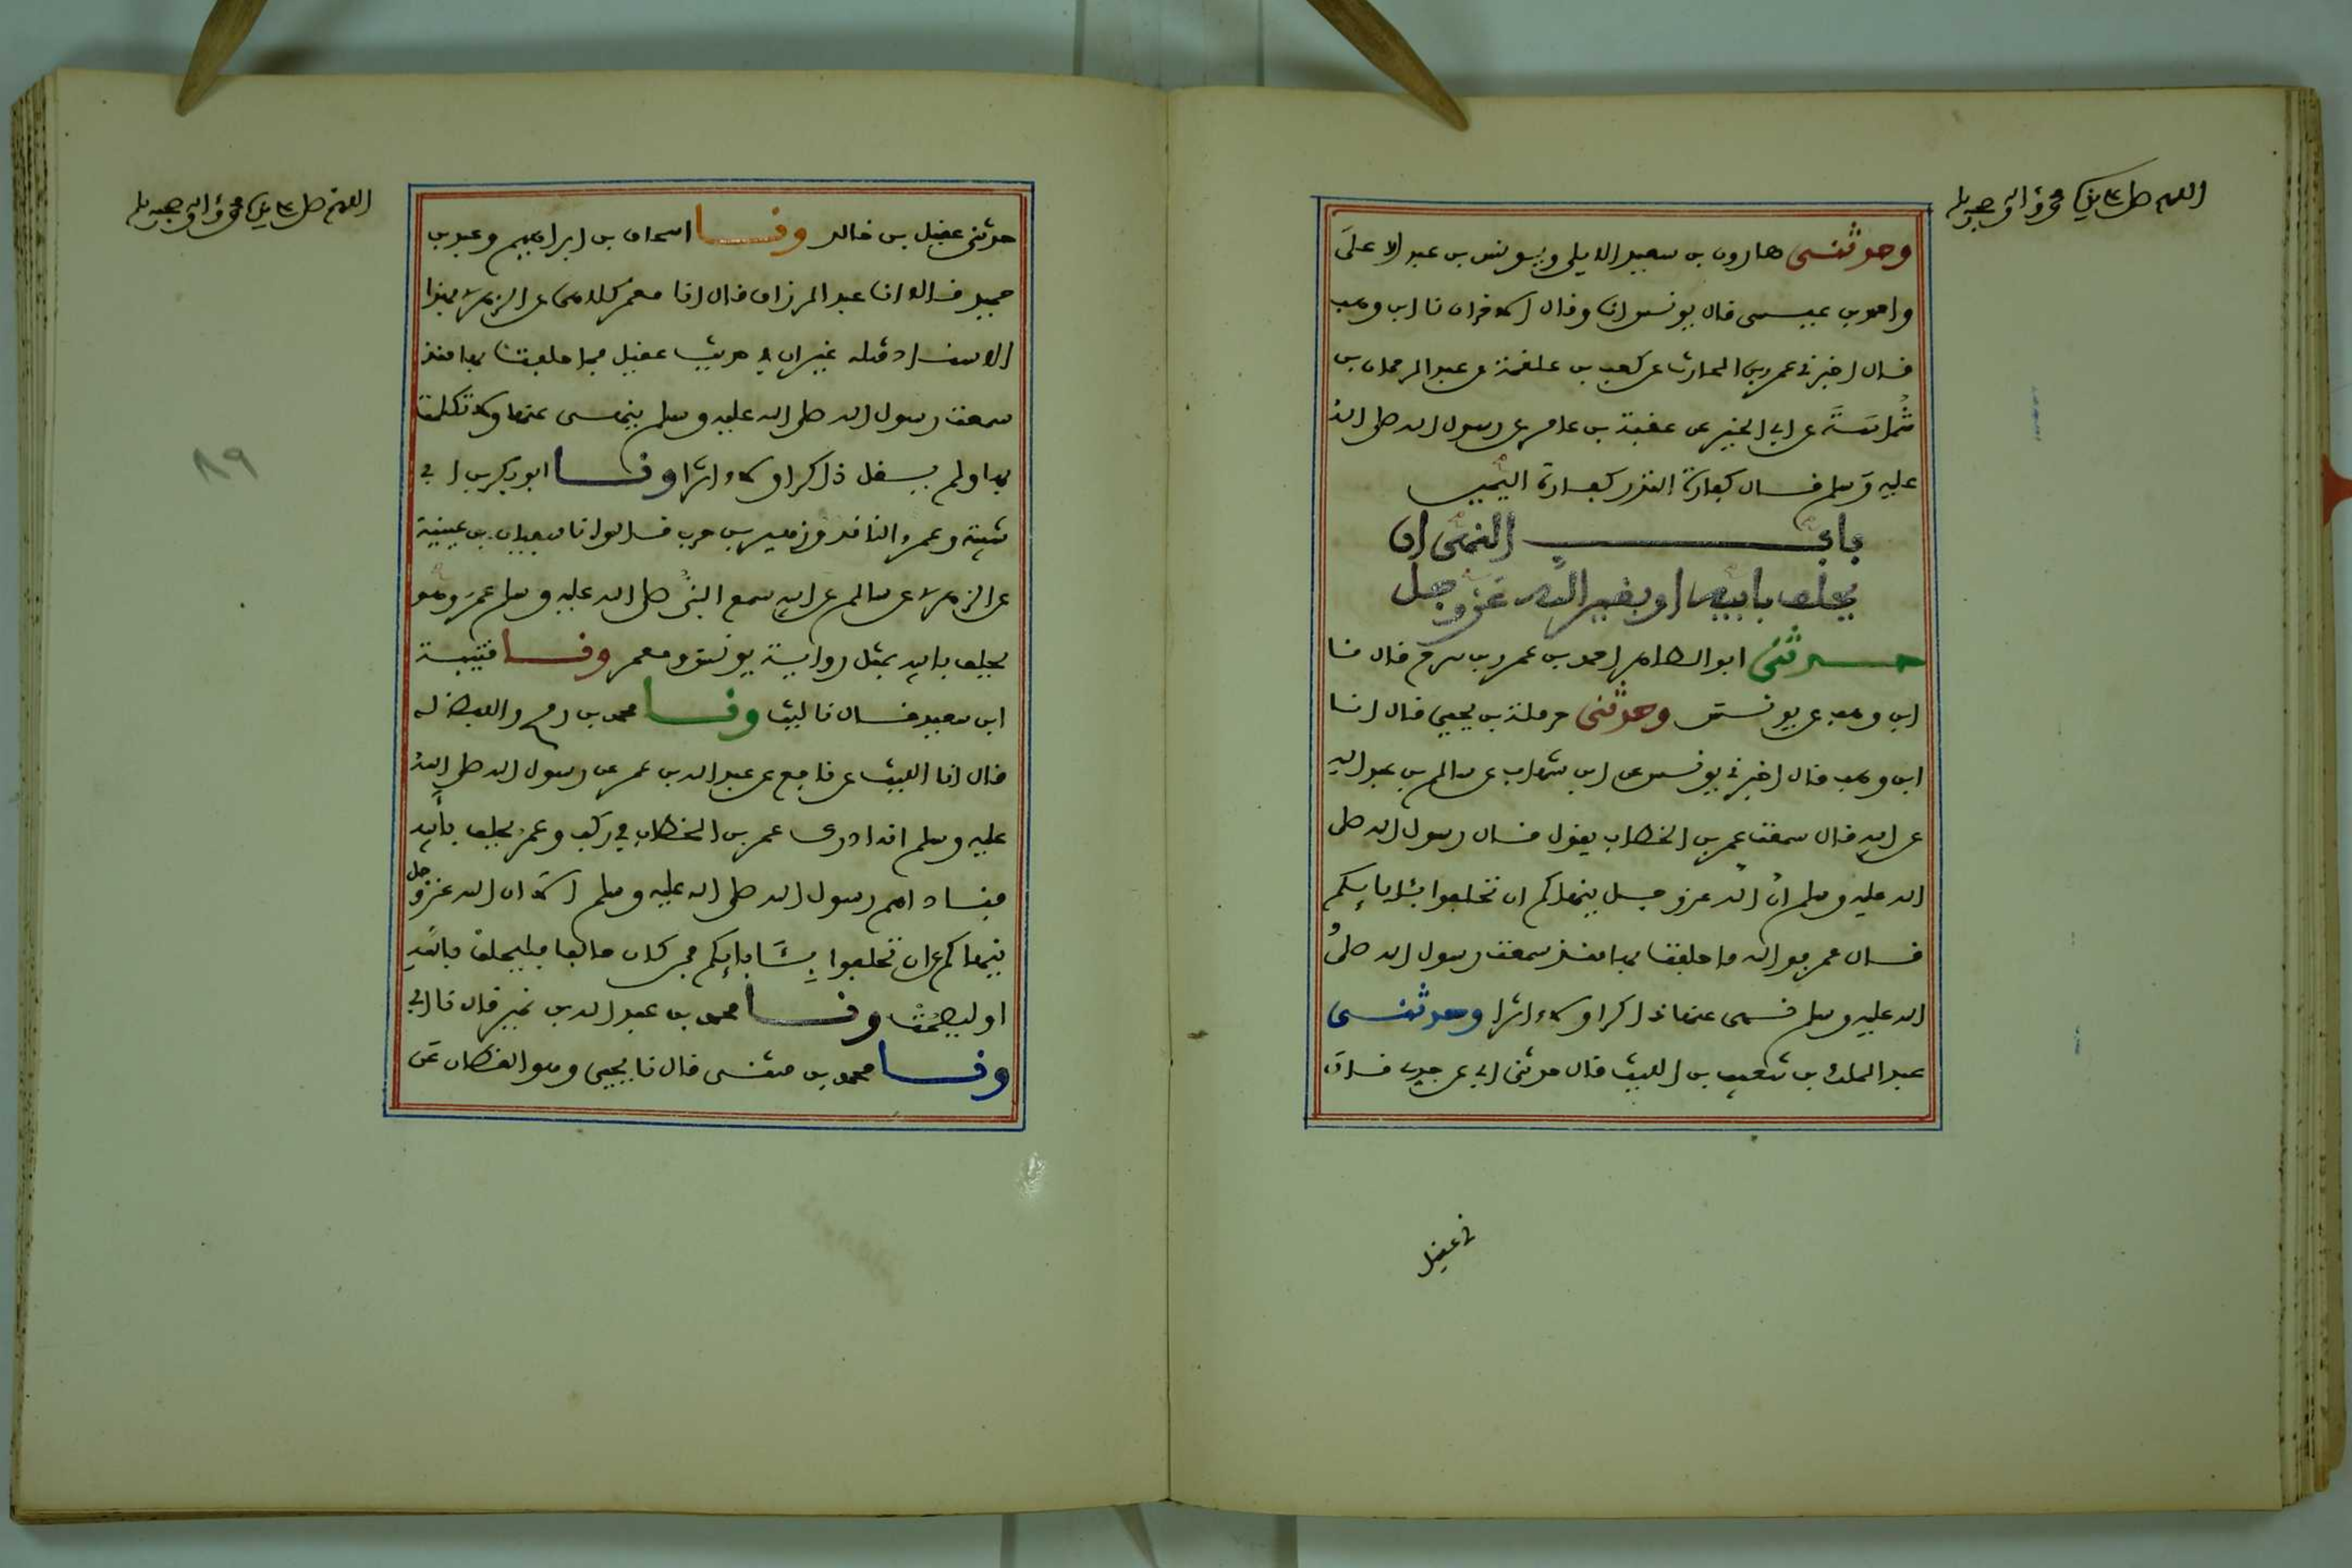 اللهم صل على سيدنا محمد واله وصحبه وسلم
وحدثنى هارون بن سعيد الايلى ويونس بن عبد الاعلى
واحمد بن عيسى قال يونس انا وقال الاخران نا ابن وهب
قال اخبرنى عمرو بن الحارث عن كعب بن علقمة عن عبد الرحمان بن
شماسة عن ابى الخير عن عقبة بن عامر عن رسول الله صلى الله
عليه وسلم قال كفارة النذر كفارة اليمين
باب النهى ان
يحلف بابيه او بغير الله عز وجل
حدثنى ابو الطاهر احمد بن عمرو بن سرح قال نا
ابن وهب عن يونس وحدثنى حرملة بن يحيى قال انا
ابن وهب قال اخبرنى يونس عن ابن شهاب عن سالم بن عبد الله
عن ابيه قال سمعت عمر بن الخطاب يقول قال رسول الله صلى
الله عليه وسلم ان الله عز وجل ينهاكم ان تحلفوا بئابايكم
قال عمر فو الله ما حلفت بها منذ سمعت رسول الله صلى
الله عليه وسلم نهى عنها ذاكرا ولا ءاثرا وحدثنى
عبد الملك بن شعيب بن الليث قال حدثنى ابى عن جدى قال
نى عقيل
اللهم صل على سيدنا محمد واله وصحبه وسلم
حدثنى عقيل بن خالد ونا اسحاق بن ابراهيم وعبد بن
حميد قالا انا عبد الرزاق قال انا معمر كلاهما عن الزهرى بهذا
الاسناد مثله غير ان فى حديث عقيل ما حلفت بها منذ
سمعت رسول الله صلى الله عليه وسلم ينهى عنها ولا تكلمت
بها ولم يقل ذاكرا ولا ءاثرا ونا ابو بكر بن ابى
شيبة وعمرو الناقد وزهير بن حرب قالوا نا سفيان بن عيينة
عن الزهرى عن سالم عن ابيه سمع النبى صلى الله عليه وسلم عمر وهو
يحلف بابيه بمثل رواية يونس ومعمر ونا قتيبة
ابن سعيد قال نا ليث ونا محمد بن رمح واللفظ له
قال انا الليث عن نافع عن عبد الله بن عمر عن رسول الله صلى الله
عليه وسلم انه ادرى عمر بن الخطاب فى ركب وعمر يحلف بأبيه
فناداهم رسول الله صلى الله عليه وسلم الا ان الله عز وجل
ينهاكم عن ان تحلفوا بئابايكم فمن كان حالفا فليحلف بالله
او ليصمت ونا محمد بن عبد الله بن نمير قال نا ابى
ونا محمد بن مثنى قال نا يحيى وهو القطان عن
٨٩